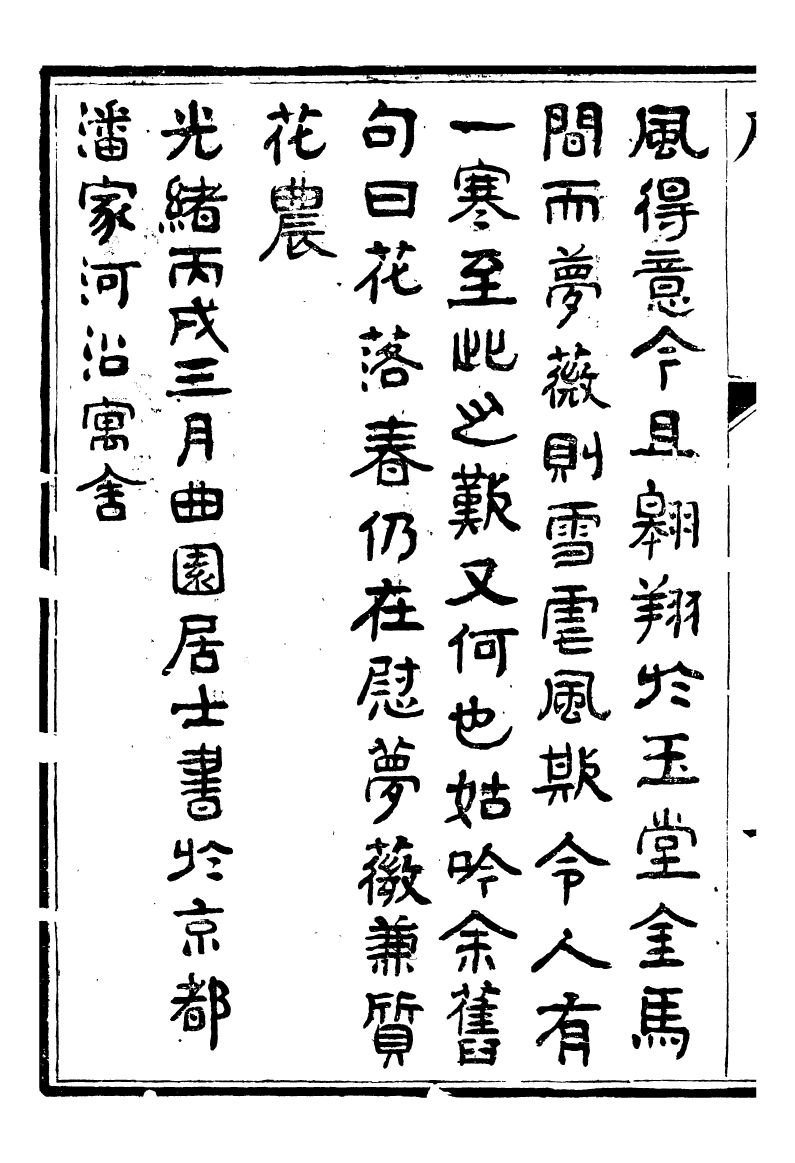 風得意今且翱翔於玉堂金馬
間而夢薇則雪虐風欺令人有
一寒至此之歎又何也姑吟余舊
句曰花落春仍在慰夢薇兼質
花農
光緒丙戌三月曲園居士書於京都
潘家河沿寓舍